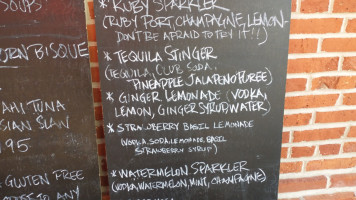 SOUPS:
RN BISQUE
AHI TUNA
SIAN SLAW
95
GLUTEN FREE
TO ANY
* RUBY SPARKLER
(RUBY PORT, CHAMPAGNE, LEMON-
DON'T BE AFRAID TO TRY IT!!)
* TEQUILA STINGER
(TEQUILA, CLUB SODA,
PINEAPPLE JALAPENO PUREE)
* GINGER LEMONADE (VODKA,
LEMON, GINGER SYRUP, WATER)
* STRAWBERRY BASIL LEMONADE
(VODKA, SODA, LEMONADE, BASIL
STRAWBERRY SYRUP)
* WATERMELON SPARKLER
(VODKA, WATERMELON, MINT, CHAMPAGNE)